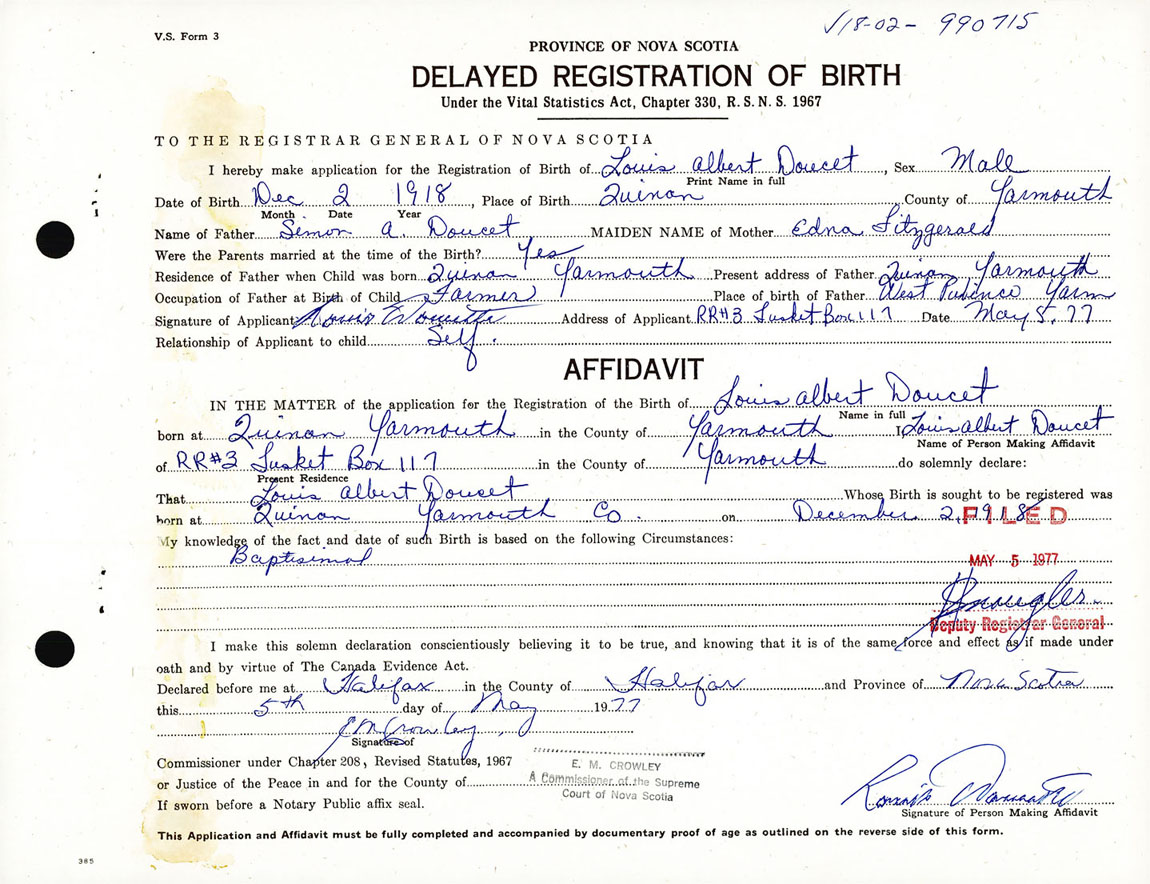 V.S. Form 3
√18-02- 990715
PROVINCE OF NOVA SCOTIA
DELAYED REGISTRATION OF BIRTH
Under the Vital Statistics Act, Chapter 330, R.S.N.S. 1967
TO THE REGISTRAR GENERAL OF NOVA SCOTIA
I hereby make application for the Registration of Birth of Louis Albert Doucet, Sex Male
Print Name in full
Date of Birth Dec 2 1918, Place of Birth Quinan County of Yarmouth
Month Date Year
Name of Father Semon A. Doucet MAIDEN NAME of Mother Edna Fitzgerald
Were the Parents married at the time of the Birth? Yes
Residence of Father when Child was born Quinan Yarmouth Present address of Father Quinan Yarmouth
Occupation of Father at Birth of Child Farmer Place of birth of Father West Pubinco Yarm
Signature of Applicant Louis Address of Applicant RR#3 Tusket Box 117 Date May 5, 77
Relationship of Applicant to child Self.
AFFIDAVIT
IN THE MATTER of the application for the Registration of the Birth of Louis Albert Doucet
Name in full
born at Quinan Yarmouth in the County of Yarmouth I Louis Albert Doucet
Name of Person Making Affidavit
of RR#3 Tusket Box 117 in the County of Yarmouth do solemnly declare:
Present Residence
That Louis Albert Doucet Whose Birth is sought to be registered was
born at Quinan Yarmouth Co. on December 2, 1918
FILED
My knowledge of the fact and date of such Birth is based on the following Circumstances:
Baptisimal
MAY 5 1977
Deputy Registrar General
I make this solemn declaration conscientiously believing it to be true, and knowing that it is of the same force and effect as if made under
oath and by virtue of The Canada Evidence Act.
Declared before me at Halifax in the County of Halifax and Province of Nova Scotia
this 5th day of May 1977
EM Crowley
Signature of
Commissioner under Chapter 208, Revised Statutes, 1967
E. M. CROWLEY
or Justice of the Peace in and for the County of
A Commissioner of the Supreme
Court of Nova Scotia
If sworn before a Notary Public affix seal.
Signature of Person Making Affidavit
This Application and Affidavit must be fully completed and accompanied by documentary proof of age as outlined on the reverse side of this form.
385